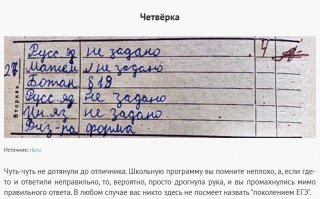 Четвёрка
Русс. яз не задано 4
27 Матем не задано
Ботан § 18
Русс. яз. не задано
Ин. яз. не задано
Физ-ра форма
Вторник
Источник: rb.ru
Чуть-чуть не дотянули до отличника. Школьную программу вы помните неплохо, а, если где-
то и ответили неправильно, то, вероятно, просто дрогнула рука, и вы промахнулись мимо
правильного ответа. В любом случае вас никто здесь не посмеет назвать "поколением ЕГЭ".